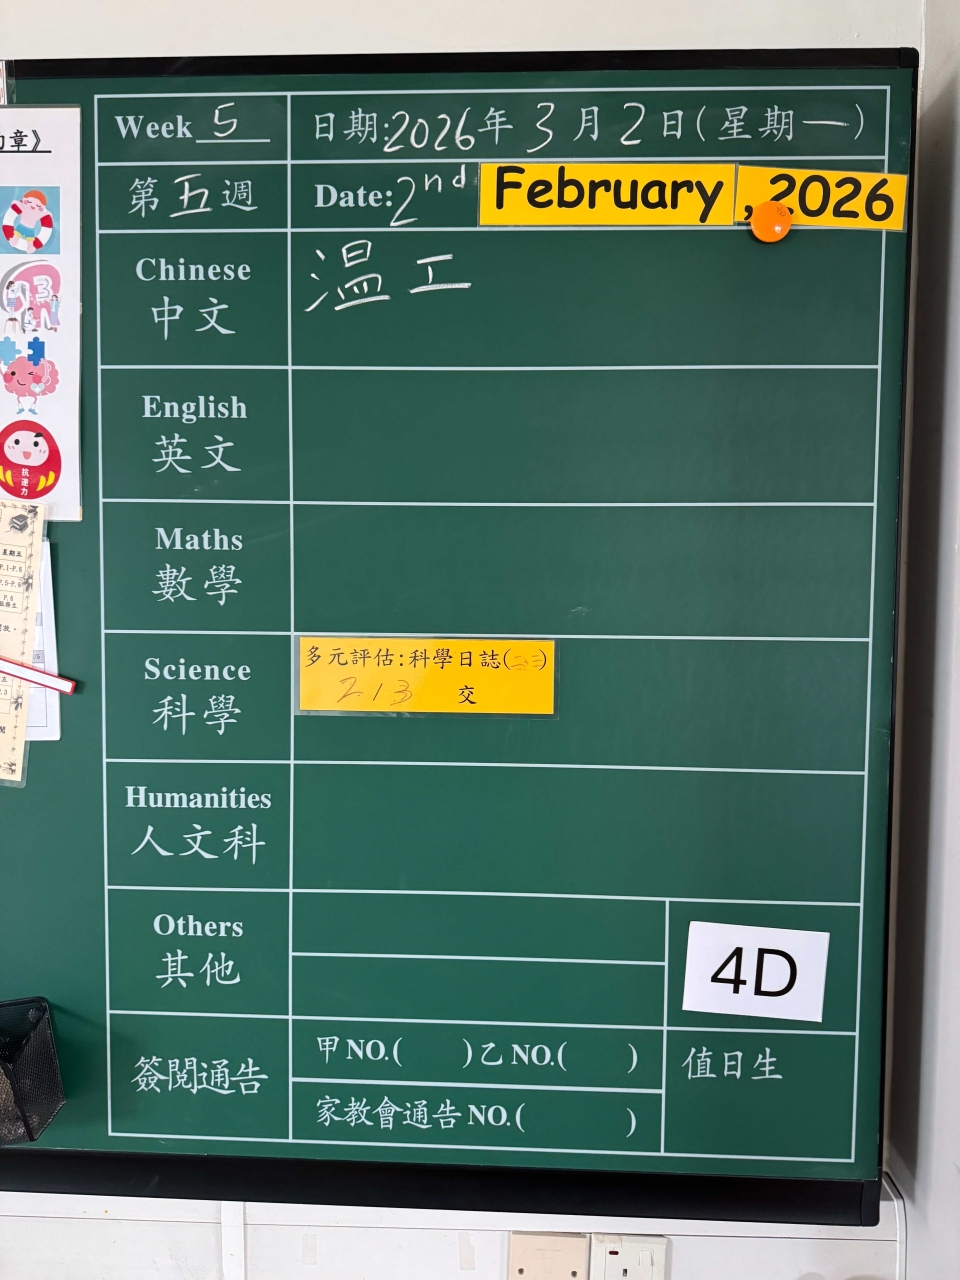 章》
抗逆力
星期五
P.1-P.6
Week 5
日期:2026年3月2日(星期一)
第五週
Date:2nd February, 2026
Chinese
中文
溫工
English
英文
Maths
數學
Science
科學
多元評估:科學日誌(二三)
2/3 交
Humanities
人文科
Others
其他
4D
簽閱通告
甲NO.( )乙NO.( )
家教會通告NO.( )
值日生